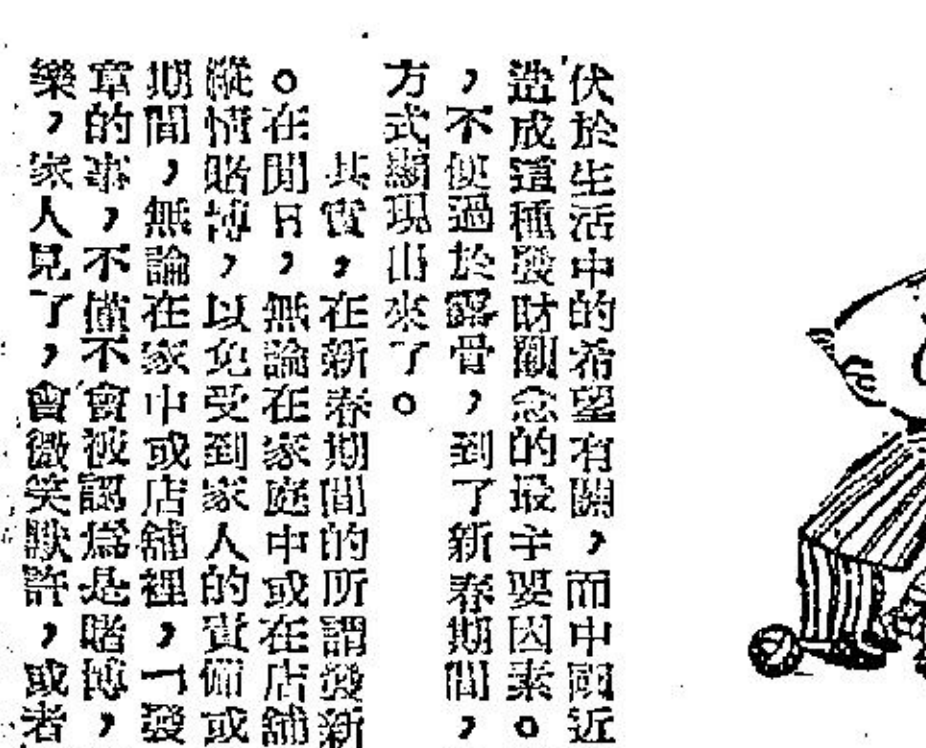 伏於生活中的希望有關，而中國近
造成這種發財觀念的最主要因素。
，不便過於露骨，到了新春期間，
方式顯現出來了。
其實，在新春期間的所謂發新
。在閒日，無論在家庭中或在店舖
縱情賭博，以免受到家人的責備或
期間，無論在家中或店舖裡，一發
章的事，不僅不會被認爲是賭博，
樂，家人見了，會微笑默許，或者